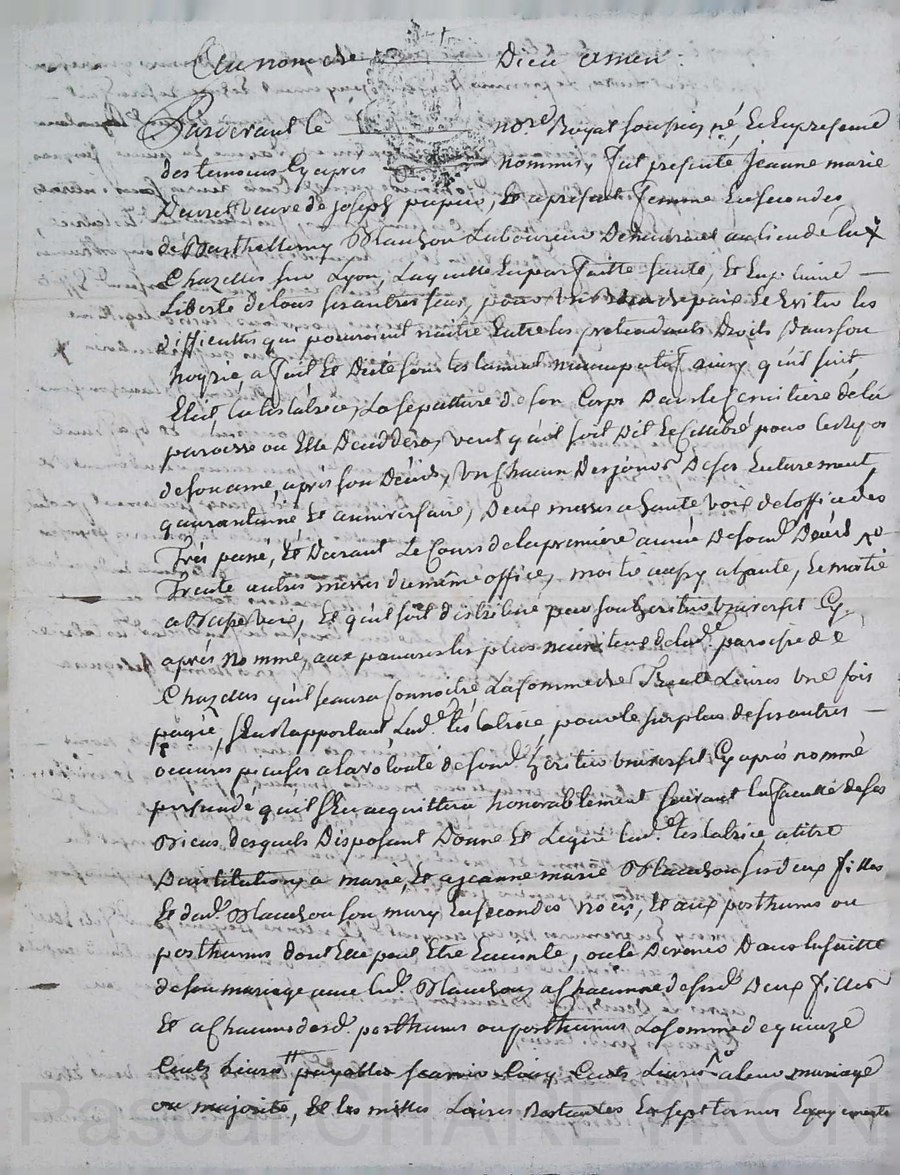 Au nom de Dieu amen :
Pardevant le no.re Royal soussigné, et en presence
des temoins cy apres nommés, fut presente Jeanne marie
veuve de Joseph papin, et a present femme en secondes
de Barthellemy Blanchon Laboureur demeurant au lieu de
Chazelles sur Lyon, Laquelle en parfaitte santé, et en
Liberté de tous ses autres sens, pour de paix et Eviter les
difficultés qui pouroient naitre Entre les pretendants Droits dans son
hoyrie, a fait Et Dicté son testament nuncupatif ainsy qu'il suit
Elit la testatrice, La sepulture de son Corps Dans le cemitiere de la
paroisse ou Elle Deceddera, veut qu'il soit Dit et Cellebré pour le repos
de son ame, après son Décéds, Un Chacun Des jours De ses Enterrement,
quarantaine Et anniversaire, Deux messes a haute voix de l'office des
Trépassé, Et Durant Le Cours de la premiere année De sond. Décéd
Trente autres messes du même office, moitié aussy a haute, Et moitié
a Basse voix, Et qu'il soit distribué par son heritier Universel Cy
après nommé, aux pauvres les plus de lad. paroisse de
Chazelles qu'il scaura Connoitre La somme de Trente Livres Une fois
payée, s'En Rapportant Lad. testatrice, pour le surplus de ses autres
oeuvres pieuses a la volonté de sond. heritier Universel Cy après nommé
persuadé qu'il s'En acquittera honorablement suivant La faculté de ses
Biens desquels Disposant Donne Et Legue Lad. testatrice a titre
D'institution a marie, Et a jeanne marie Blanchon ses deux filles
Et dud. Blanchon son mary En secondes noces, Et aux posthumes ou
posthumes dont Elle peut Etre Enceinte, ou le Devenir Dans la suitte
de son mariage avec led. Blanchon, a Chacunne de sesd. Deux filles
Et a Chacun desd. posthumes ou posthumes La somme de quinze
Cents Livres payables scavoir Cinq Cents Livres a leur mariage
ou majorité, Et les milles Livres Restantes En sept termes Egaux
Pascal CHAREYRON